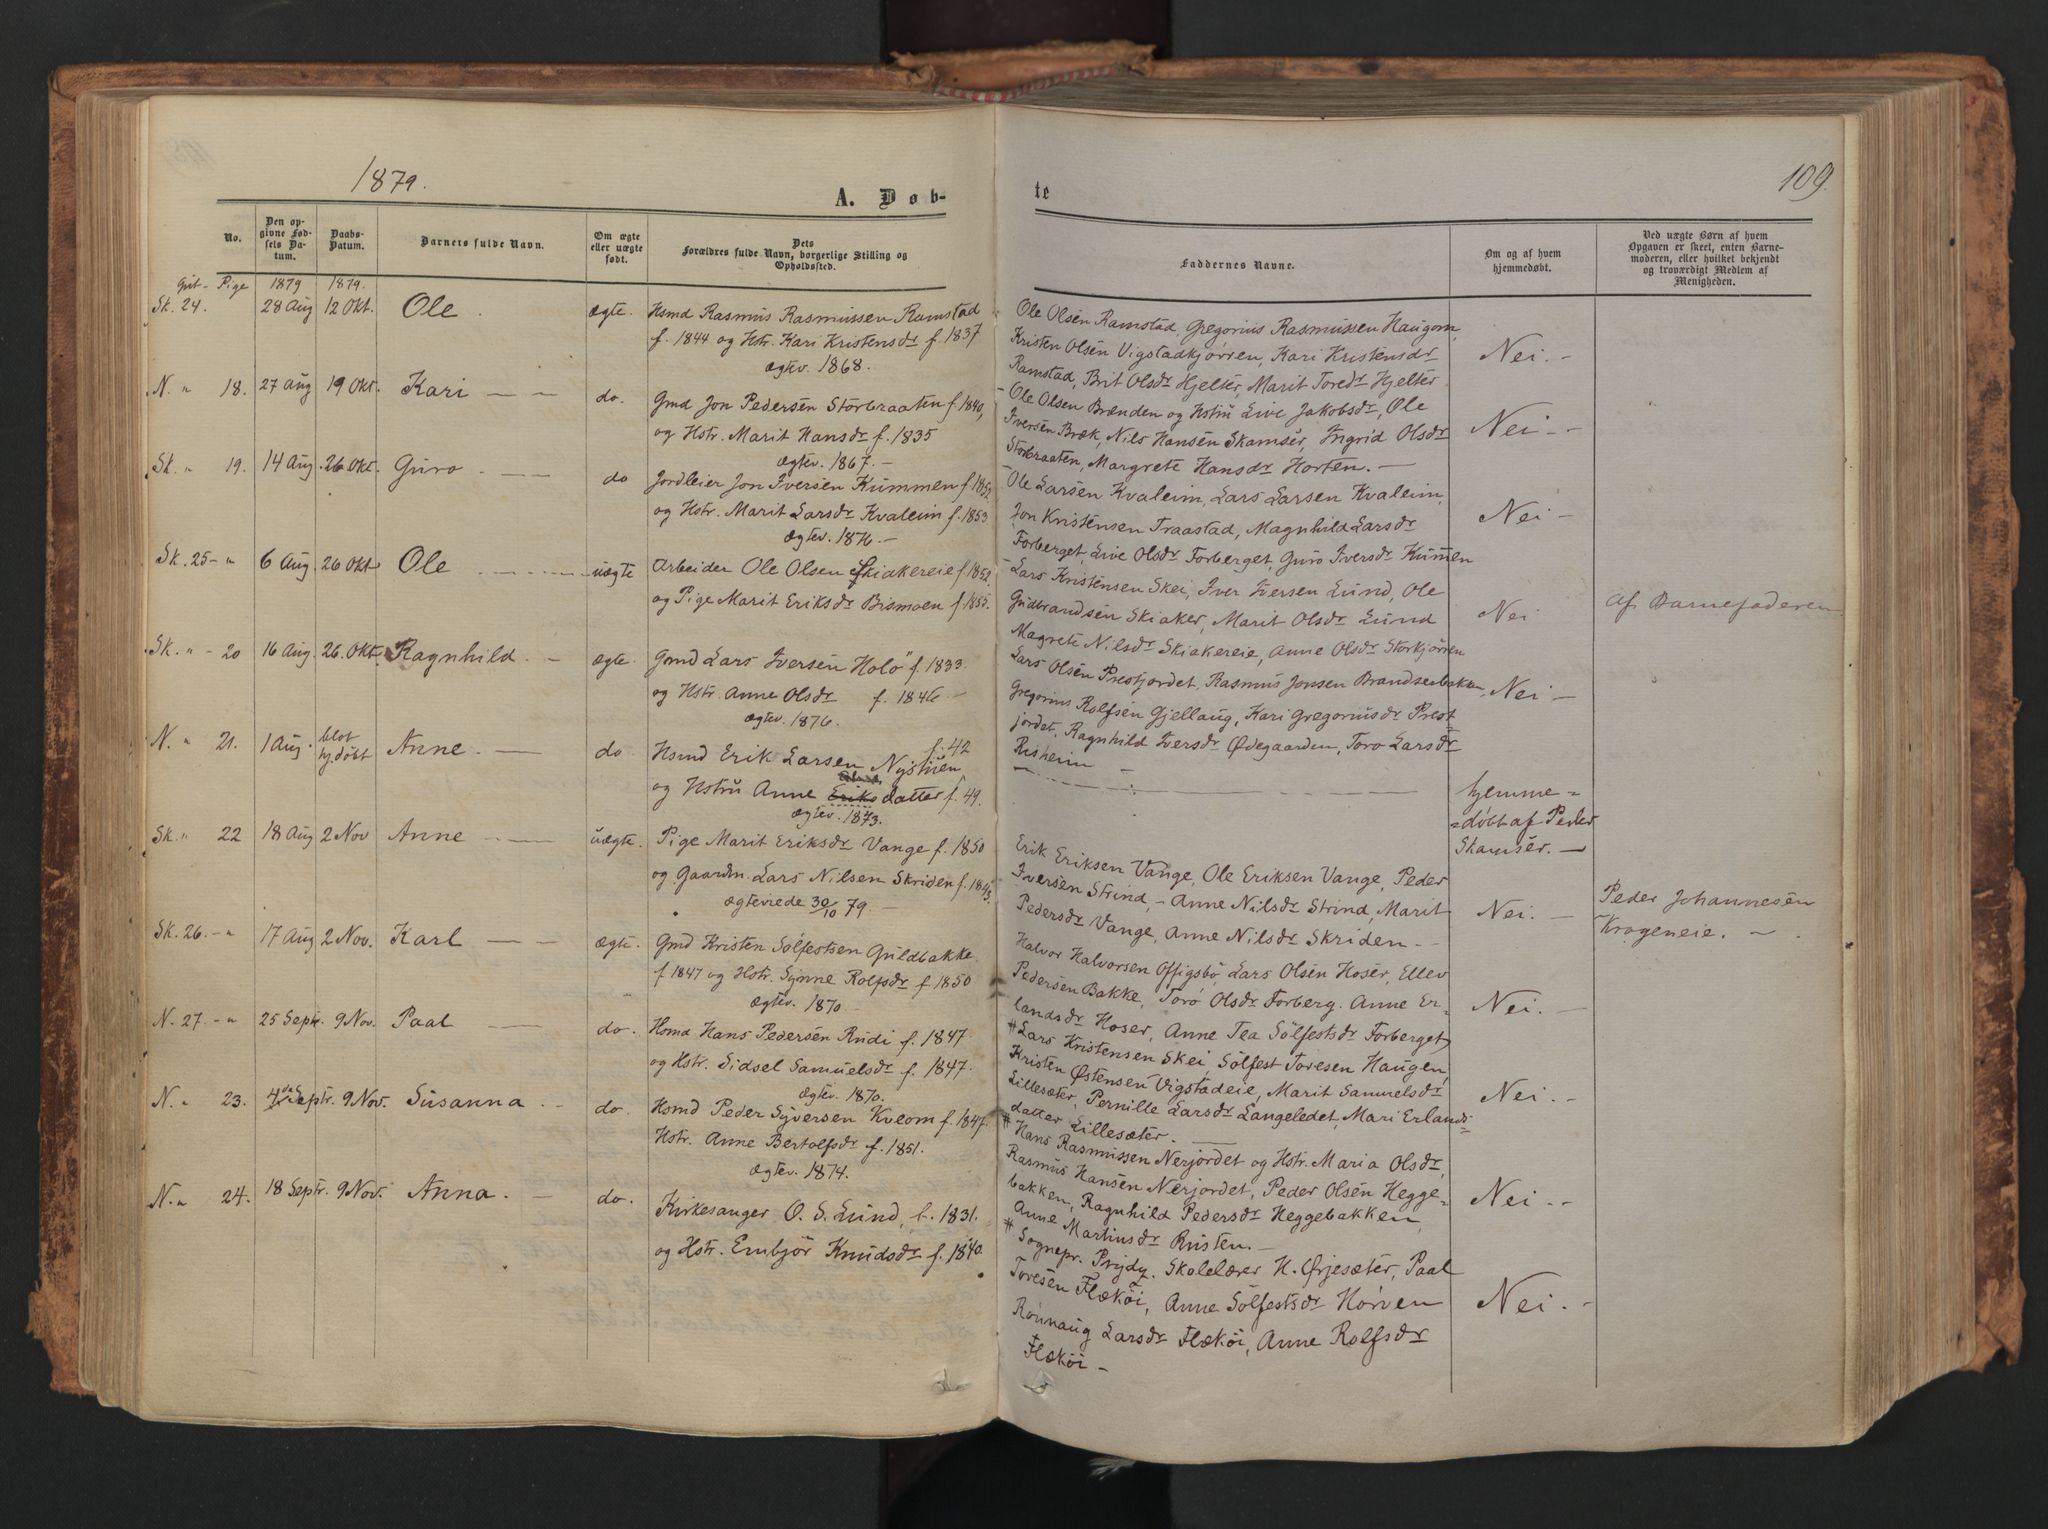 1879.
A. Døb-
No.
Den op-
givne Fød-
sels Da-
tum.
Daabs-
Datum.
Barnets fulde Navn.
Om ægte
eller uægte
født.
Dets
Forældres fulde Navn, borgerlige Stilling og
Opholdssted.
Gut- Pige 1879 1879.
Sk. 24. 28 Aug 12 Okt. Ole ægte. Hsmd Rasmus Rasmussen Ramstad
f. 1844 og Hstr. Kari Kristensdr f. 1837
ægtev. 1868.
N. " 18. 27 Aug 19 Okt. Kari — — do. Gmd Jon Pedersen Storbraaten f. 1840,
og Hstr. Marit Hansdr f. 1835
ægtev. 1867. —
Sk. " 19. 14 Aug. 26 Okt. Guro do Jordleier Jon Iversen Kummen f. 1852.
og Hstr. Marit Larsdr Kvaleim f. 1853.
ægtev. 1876. —
Sk. 25 - " 6 Aug 26 Okt Ole uægte Arbeider Ole Olsen Skiakereie f. 1852.
og Pige Marit Eriksdr Bismoen f. 1855.
Sk. " - 20 16 Aug. 26 Okt. Ragnhild - ægte. Gmd Lars Iversen Holø f. 1833.
og Hstr. Anne Olsdr f. 1846 —
ægtev. 1876.
N. " 21. 1 Aug. blot
hj.døbt Anne. — do. Hsmd Erik Larsen Nystuen f. 42
og Hstru Anne Eriksdatter f. 49.
ægtev. 1873.
Sk. " 22 18 Aug 2 Nov Anne uægte. Pige Marit Eriksdr Vange f. 1850
og Gaardm. Lars Nilsen Skriden f. 1843.
ægteviede 30/10 79. —
Sk. 26. - " 17 Aug 2 Nov. Karl — — ægte. Gmd Kristen Sølfestsen Guldbakke
f. 1847 og Hstr. Synne Rolfsdr f. 1850
ægtev. 1870. —
N. 27. - " 25 Septr. 9 Nov. Paal — do. Hsmd Hans Pedersen Rudi f. 1847
og Hstr. Sidsel Samuelsdr f. 1847.
ægtev. 1870.
N. " 23. 4de Septr. 9 Nov. Susanna. - do. Hsmd Peder Syversen Kveom f. 1847.
Hstr. Anne Bertolfsdr f. 1851.
ægtev. 1874.
N. " 24. 18 Septr. 9 Nov. Anna. — do. Kirkesanger O. S. Lund, f. 1831.
og Hstr. Embjør Knudsdr f. 1840.
te
109.
Faddernes Navne.
Om og af hvem
hjemmedøbt.
Ved uægte Børn af hvem
Opgaven er skeet, enten Barne-
moderen, eller hvilket bekjendt
og troværdigt Medlem af
Menigheden.
Ole Olsen Ramstad, Gregorius Rasmussen Haugom,
Kristen Olsen Vigstadkjørren, Kari Kristensdr Nei. -
Ramstad, Brit Olsdr Hjelter, Marit Toredr Hjelter
- Ole Olsen Brænden og Hstru Live Jakobsdr, Ole
Iversen Bræk, Nils Hansen Skamser, Ingrid Olsdr Nei - -
Storbraaten, Margrete Hansdr Horten. —
- Ole Larsen Kvaleim, Lars Larsen Kvaleim,
Jon Kristensen Traastad, Magnhild Larsdr Nei -
Forberget, Live Olsdr Forberget, Guro Iversdr Kummen
- Lars Kristensen Skei, Iver Iversen Lund, Ole
Gudbrandsen Skiaker, Marit Olsdr Lund Nei Af Barnefaderen
Magrete Nilsdr Skiakereie, Anne Olsdr Storkjørren
Lars Olsen Prestjordet, Rasmus Jonsen Brandsenbakken, Nei -
Gregorius Rolfsen Gjellaug, Kari Gregoriusdr Prest-
jordet, Ragnhild Iversdr Ødegaarden, Toro Larsdr
Risheim -
hjemme-
=døbt af Peder
Skamser. —
Erik Eriksen Vange, Ole Eriksen Vange, Peder
Iversen Strind, - Anne Nilsdr Strind, Marit Nei. - Peder Johannesen
Pedersdr Vange, Anne Nilsdr Skriden - - Krogeneie. -
Halvor Halvorsen Offigsbø, Lars Olsen Hoser, Ellev
Pedersen Bakke, Toro Olsdr Forberg. Anne Er- Nei. -
landsdr Hoser, Anne Tea Sølfestsdr Forberget
# Lars Kristensen Skei, Sølfest Toresen Haugen,
Kristen Østensen Vigstadeie, Marit Samuelsdr Nei. -
Lillesæter, Pernille Larsdr Langeledet, Mari Erlands-
datter Lillesæter. —
# Hans Rasmussen Nerjordet og Hstr. Maria Olsdr,
Rasmus Hansen Nerjordet, Peder Olsen Hegge- Nei. - -
bakken, Ragnhild Pedersdr Heggebakken,
Anne Martinusdr Rusten. —
# Sognepr. Prydz, Skolelærer H. Ørjesæter, Paal
Toresen Flækøi, Anne Sølfestsdr Hørven Nei. -
Rønnaug Larsdr Flækøi, Anne Rolfsdr
Flækøi —